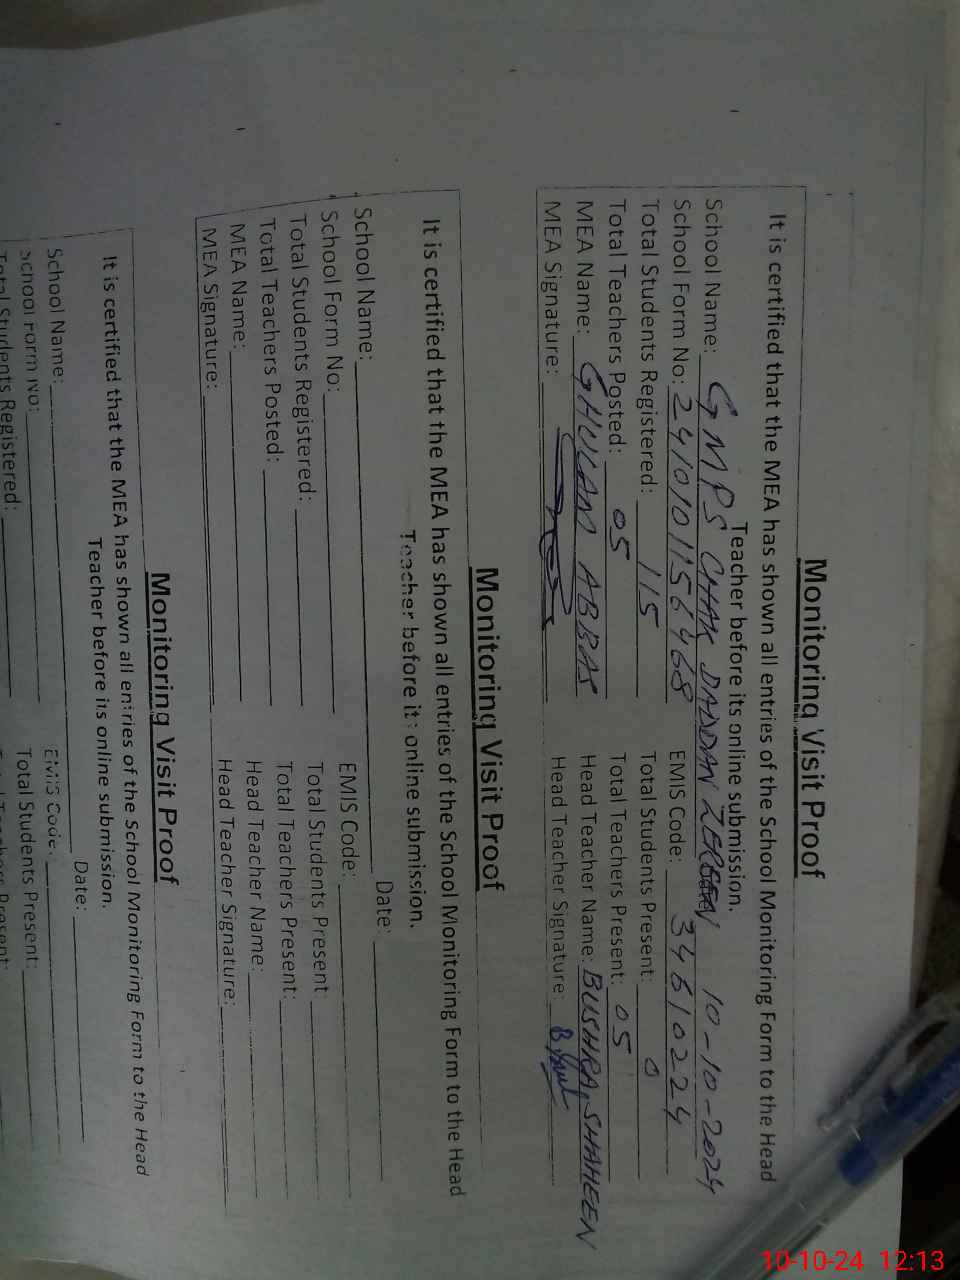 Monitoring Visit Proof
It is certified that the MEA has shown all entries of the School Monitoring Form to the Head
Teacher before its online submission.
School Name: GMPS CHAK DADDAN 10-10-2024
School Form No: 2410101156468 EMIS Code: 34610224
Total Students Registered: 115 Total Students Present: 0
Total Teachers Posted: 05 Total Teachers Present: 05
MEA Name: GHULAM ABBAS Head Teacher Name: BUSHRA SHAHEEN
MEA Signature: Head Teacher Signature:
Monitoring Visit Proof
It is certified that the MEA has shown all entries of the School Monitoring Form to the Head
Teacher before its online submission.
School Name: Date:
School Form No: EMIS Code:
Total Students Registered: Total Students Present:
Total Teachers Posted: Total Teachers Present:
MEA Name: Head Teacher Name:
MEA Signature: Head Teacher Signature:
Monitoring Visit Proof
It is certified that the MEA has shown all entries of the School Monitoring Form to the Head
Teacher before its online submission.
School Name: Date:
School Form No: EMIS Code:
Total Students Registered: Total Students Present:
10-10-24 12:13